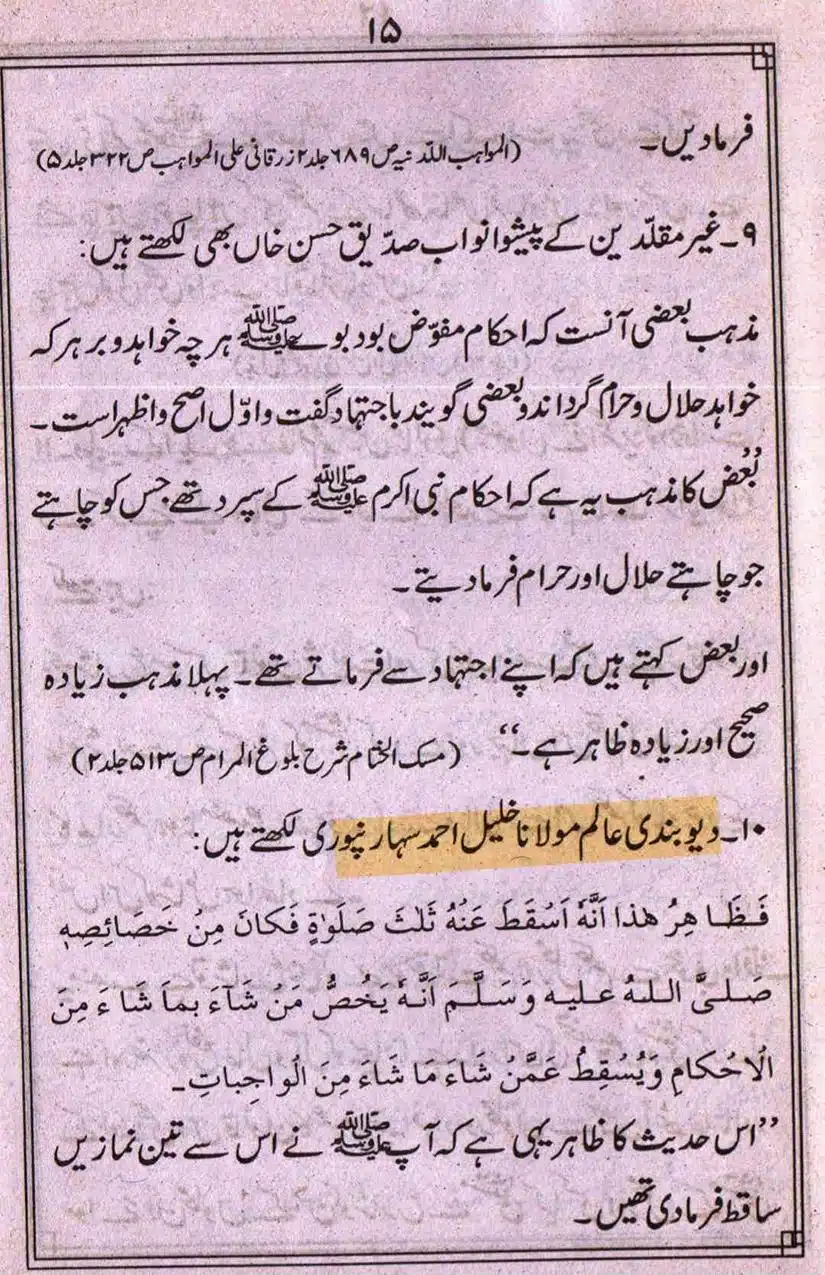 ۱۵
فرمادیں۔ (المواہب اللدنیہ ص ۶۸۹ جلد ۲ زرقانی علی المواہب ص ۳۲۲ جلد ۵)
۹۔ غیر مقلّدین کے پیشوا نواب صدّیق حسن خاں بھی لکھتے ہیں:
مذہب بعضی آنست کہ احکام مفوّض بود بوے ﷺ ہر چہ خواہد و بر ہر کہ
خواہد حلال و حرام گرداند و بعضی گویند با جتہاد گفت و اوّل اصح و اظہر است۔
”بعض کا مذہب یہ ہے کہ احکام نبی اکرم ﷺ کے سپرد تھے جس کو چاہتے
جو چاہتے حلال اور حرام فرما دیتے۔
اور بعض کہتے ہیں کہ اپنے اجتہاد سے فرماتے تھے۔ پہلا مذہب زیادہ
صحیح اور زیادہ ظاہر ہے۔“ (مسک الختام شرح بلوغ المرام ص ۵۱۳ جلد ۲)
۱۰۔ دیوبندی عالم مولانا خلیل احمد سہارنپوری لکھتے ہیں:
فَظَاهِرُ هٰذا اَنَّهٗ اَسْقَطَ عَنْهُ ثَلٰثَ صَلَوٰةٍ فَكَانَ مِنْ خَصَائِصِهٖ
صَلىَّ اللهُ عليه وَسَلَّمَ اَنَّهٗ يَخُصُّ مَنْ شَآءَ بماَ شَاءَ مِنَ
الْاحْكامِ وَيُسْقِطُ عَمَّنْ شَاءَ مَا شَاءَ مِنَ الْواجِباتِ۔
”اس حدیث کا ظاہر یہی ہے کہ آپ ﷺ نے اس سے تین نمازیں
ساقط فرما دی تھیں۔